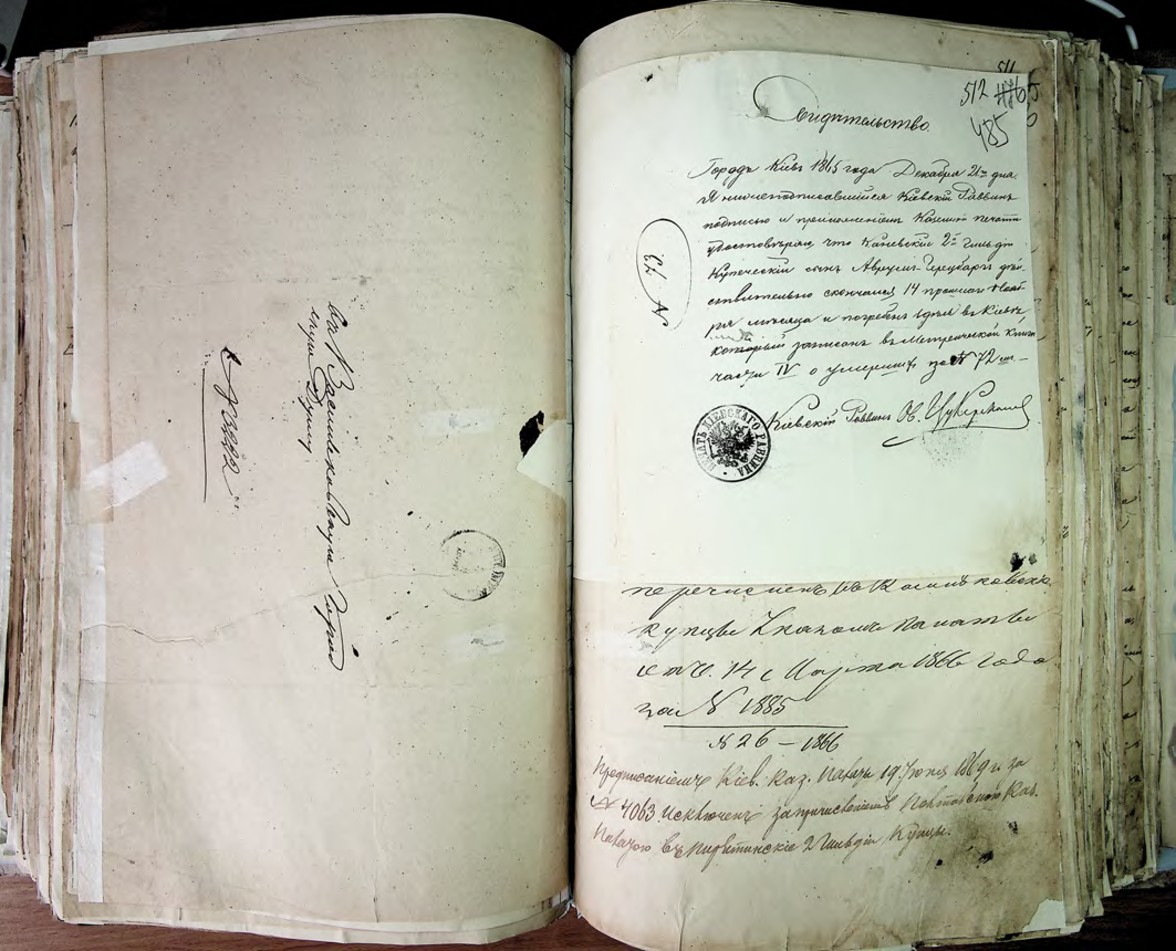 въ Васильковскую Город
скую Думу
511
512
485
Свидѣтельство
Городъ Кіевъ 1865 года Декабря 21го дня.
Я нижеподписавшійся Кіевскій Раввинъ
подписью и приложеніемъ Казенной печати
удостовѣряю, что Каневскій 2й Гильдіи
Купеческій сынъ Аврумъ Герцбаргъ дѣй-
ствительно скончался 14 прошлаго Нояб-
ря мѣсяца и погребенъ здѣсь въ Кіевѣ,
который записанъ въ Метрической Книгѣ
части IV о умершихъ за № 72 —
№ 73
Кіевскій Раввинъ
ПЕЧАТЬ КІЕВСКАГО РАВВИНА
перечисленъ въ Васильковскіе
купцы Указомъ Палаты
отъ 14 Марта 1866 года
за № 1885
№ 26 — 1866
Предписаніемъ Кіев. Каз. Палаты 19 Іюня 1869 г. за
№ 4063 Исключенъ за причисленіемъ Полтавскою Каз.
Палатою въ Пирятинскіе 2 Гильдіи Купцы.